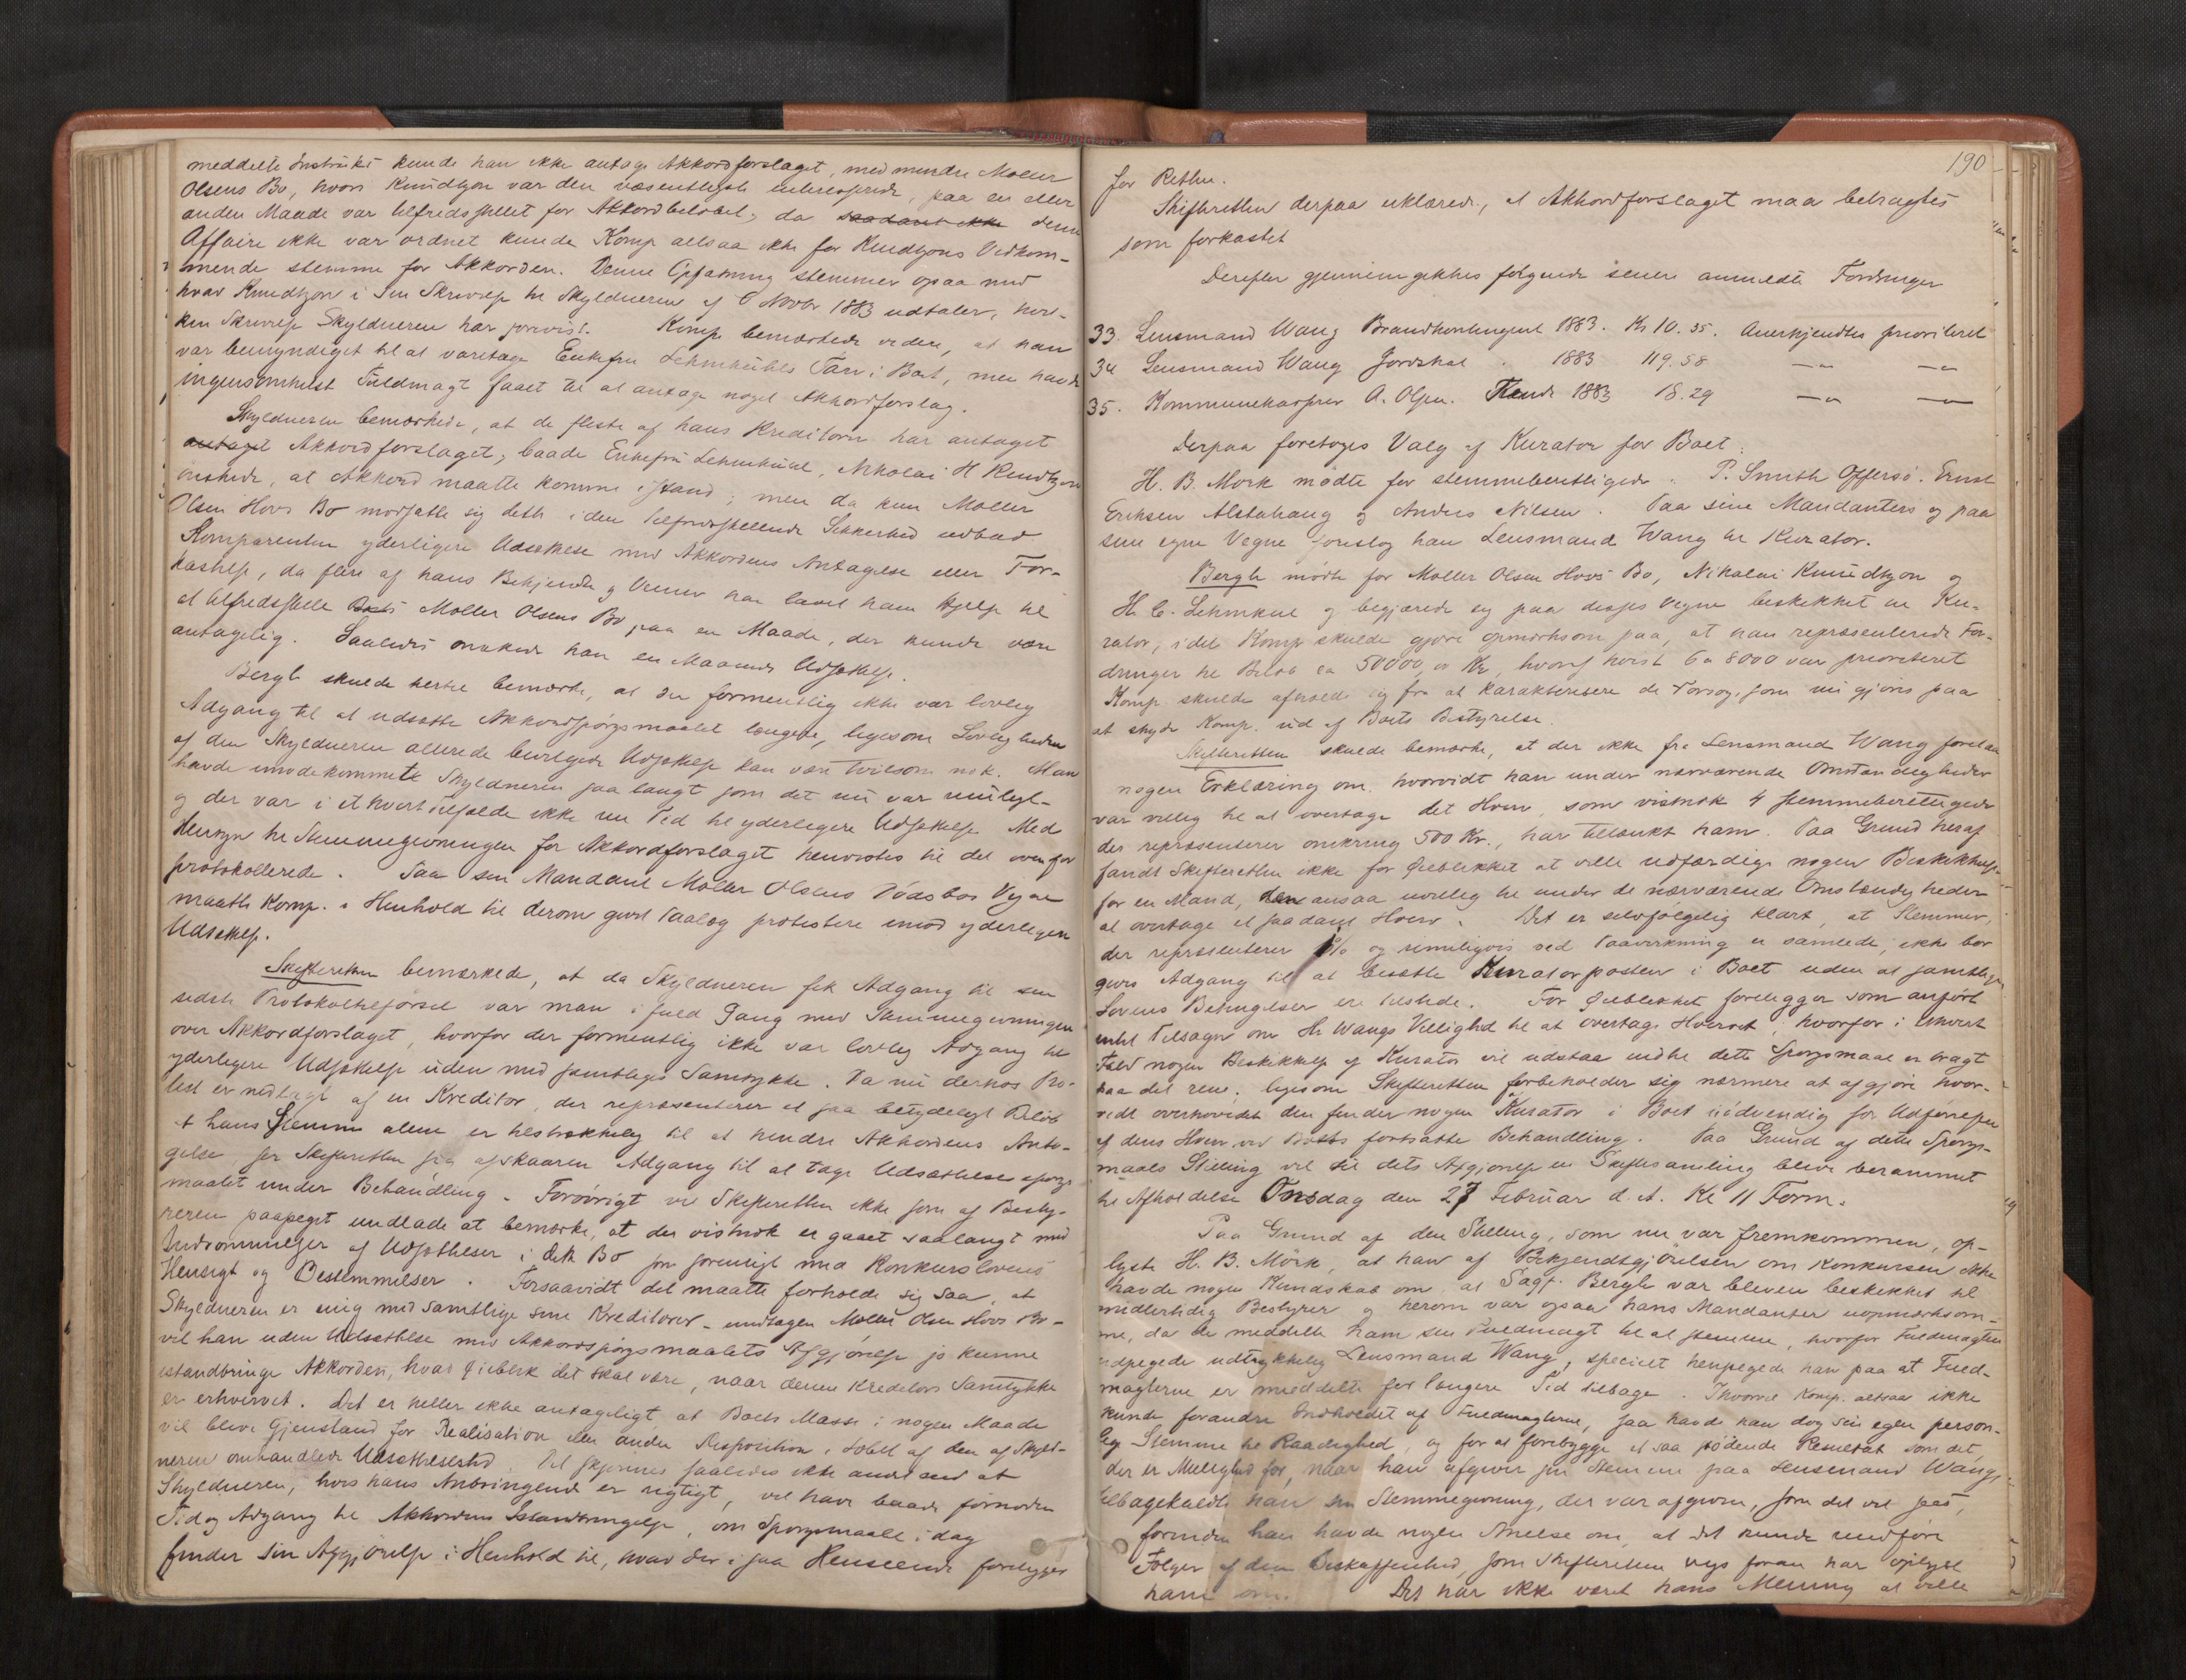 meddelte Instruks kunde han ikke antage Akkordforslaget, medmindre Møller
Olsens Bo, hvori Knudtzon var den væsentligste interesserede, paa en eller
anden Maade var tilfredsstillet for Akkordbeløbet; da saadant ikke denne
Affaire ikke var ordnet kunde Komp altsaa ikke for Knudtzons Vedkom-
mende stemme for Akkorden. Denne Opfatning stemmer ogsaa med
hvad Knudtzon i sin Skrivelse til Skyldneren af 6 Novbr 1883 udtaler, hvil-
ken Skrivelse Skyldneren har forevist. Komp bemærkede videre, at han
var bemyndiget til at varetage Enkefru Lehmkuhls Tarv i Boet, men havde
ingensomhelst Fuldmagt faaet til at antage noget Akkordforslag.
Skyldneren bemærkede, at de fleste af hans Kreditorer har antaget
antaget Akkordforslaget; baade Enkefru Lehmkuhl, Nikolai H Knudtzon
ønskede, at Akkord maatte komme istand; men da kun Møller
Olsen Hovs Bo modsatte sig dette iden tilfredsstillende Sikkerhed udbad
Komparenten yderligere Udsættelse med Akkordens Antagelse eller For-
kastelse, da flere af hans Bekjendte og Venner har lovet ham Hjelp til
at tilfredsstille Boets Møller Olsens Bo paa en Maade, der kunde være
antagelig. Saaledes ønskede han en Maaneds Udsættelse.
Bergh skulde hertil bemærke, at der formentlig ikke var lovlig
Adgang til at udsætte Akkordspørgsmaalet længere, ligesom Lovligheden
af den Skyldneren allerede bevilgede Udsættelse kan være tvilsom nok. Man
havde imødekommet Skyldneren saa langt som det nu var muligt-
og der var i ethvert tilfælde ikke nu Tid til yderligere Udsættelse. Med
Hensyn til Stemmegivningen for Akkordforslaget henvistes til det ovenfor
protokollerede. Paa sin Mandant Møller Olsens Dødsbos Vegne
maatte Komp. i Henhold til derom givet Paalæg protestere imod yderligere
Udsættelse.
Skifteretten bemærkede, at da Skyldneren fik Adgang til sin
sidste Protokoltilførsel var man i fuld Gang med Stemmegivningen
over Akkordforslaget, hvorfor der formentlig ikke var lovlig Adgang til
yderligere Udsættelse uden med samtliges Samtykke. Da nu derhos Pro-
test er nedlagt af en Kreditor, der repræsenterer et saa betydeligt Beløb
at hans Stemme alene er tilstrækkelig til at hindre Akkordens Anta-
gelse, ser Skifteretten sig afskaaren Adgang til at tage Udsættelsesspørgs-
maalet under Behandling. Forøvrigt vil Skifteretten ikke som af Besty-
reren paapeget undlade at bemærke, at der vistnok er gaaet saalangt med
Indrømmelser af Udsættelser i dette Bo som foreneligt med Konkurslovens
Hensigt og Bestemmelser. Forsaavidt det maatte forholde sig saa, at
Skyldneren er enig med samtlige sine Kreditorer - undtagen Møller Olsen Hovs Bo -
vil han uden Udsættelse med Akkordspørgsmaalets Afgjørelse jo kunne
istandbringe Akkorden, hvad Øieblik det skal være, naar denne Kreditors Samtykke
er erhvervet. Det er heller ikke antageligt at Boets Masse i nogen Maade
vil blive Gjenstand for Realisation eller anden Disposition i Løbet af den af Skyld-
neren omhandlede Udsættelsestid. Det skjønnes saaledes ikke andet end at
Skyldneren, hvis hans Anbringende er rigtigt, vil have baade fornøden
Tid og Adgang til Akkordens Istandbringelse, om Spørgsmaalet i dag
finder sin Afgjørelse i Henhold til, hvad der i saa Henseende foreligger
190
for Retten.
Skifteretten derpaa erklærede, at Akkordforslaget maa betragtes
som forkastet
Derefter gjennemgikkes følgende senere anmeldte Fordringer
33. Lensmand Wang Brandkontingent 1883. Kr 10.35. Anerkjendtes prioriteret
34 Lensmand Wang Jordskat . 1883 119.58 —„— —„—
35. Kommunekasserer A. Olsen. Tiende 1883 18.29 —„— —„—
Derpaa foretoges Valg af Kurator for Boet.
H. B. Mørk mødte for stemmeberettigede: P. Smith Offersø. Ernst
Eriksen Alstahaug og Anders Nilsen. Paa sine Mandanters og paa
sine egne Vegne foreslog han Lensmand Wang til Kurator.
Bergh mødte for Møller Olsen Hovs Bo, Nikolai Knudtzon og
H. C. Lehmkul og begjærede sig paa disses Vegne beskikket til Ku-
rator, idet Komp skulde gjøre opmærksom paa, at han repræsenterede For-
dringer til Beløb ca 50000, Kr, hvoraf høist 6 a 8000 var prioriteret
Komp skulde afholde sig fra at karakterisere de Forsøg, som nu gjøres paa
at skyde Komp. ud af Boets Bestyrelse.
Skifteretten skulde bemærke, at der ikke fra Lensmand Wang forelaa
nogen Erklæring om, hvorvidt han under nærværende Omstændigheder
var villig til at overtage det Hverv, som vistnok 4 stemmeberettigede
der repræsenterer omkring 500 Kr., har tiltænkt ham. Paa Grund heraf
fandt Skifteretten ikke for Øieblikket at ville udfærdige nogen Beskikkelse
for en Mand, den ansaa uvillig til under de nærværende Omstændigheder
at overtage et saadant Hverv. Det er selvfølgelig klart, at Stemmer,
der repræsenterer 1% og rimeligvis ved Paavirkning er samlede, ikke bør
gives Adgang til at besætte Kuratorposten i Boet uden at samtlige
Lovens Betingelser ere tilstede. For Øieblikket foreligger som anført
intet Tilsagn om Hr Wangs Villighed til at overtage Hvervet; hvorfor i ethvert
Fald nogen Beskikkelse af Kurator vil udstaa indtil dette Spørgsmaal er bragt
paa det rene; ligesom Skifteretten forbeholder sig nærmere at afgjøre hvor-
vidt overhovedet den finder nogen Kurator i Boet nødvendig for Udførelsen
af dens Hverv ved Boets fortsatte Behandling. Paa Grund af dette Spørgs-
maals Stilling vil til dets Afgjørelse en Skiftesamling blive berammet
til Afholdelse Onsdag den 27 Februar d. A. Kl 11 Form.
Paa Grund af den Stilling, som nu var fremkommen, op-
lyste H. B. Mörk, at han af Bekjendtgjørelsen om Konkursen ikke
havde nogen Kundskab om at Sagf. Bergh var bleven beskikket til
midlertidig Bestyrer og herom var ogsaa hans Mandanter uopmærksom-
me, da de meddelte ham sin Fuldmagt til at stemme, hvorfor Fuldmagten
udpegede udtrykkelig Lensmand Wang, specielt henpegede han paa at Fuld-
magterne er meddelte for længere Tid tilbage. Ihvorvel Komp. altsaa ikke
kunde forandre Indholdet af Fuldmagterne, saa havde han dog sin egen person-
lig Stemme til Raadighed, og for at forebygge et saa stødende Resultat som det,
der er Mulighed for, naar han afgiver sin Stemme paa Lensmand Wang,
tilbagekaldte han sin Stemmegivning, der var afgiven, som det vil sees,
forinden han havde nogen Anelse om, at det kunde medføre
Følger af den Beskaffenhed, som Skifteretten nys foran har oplyst
ham om. Det har ikke været hans Mening at ville